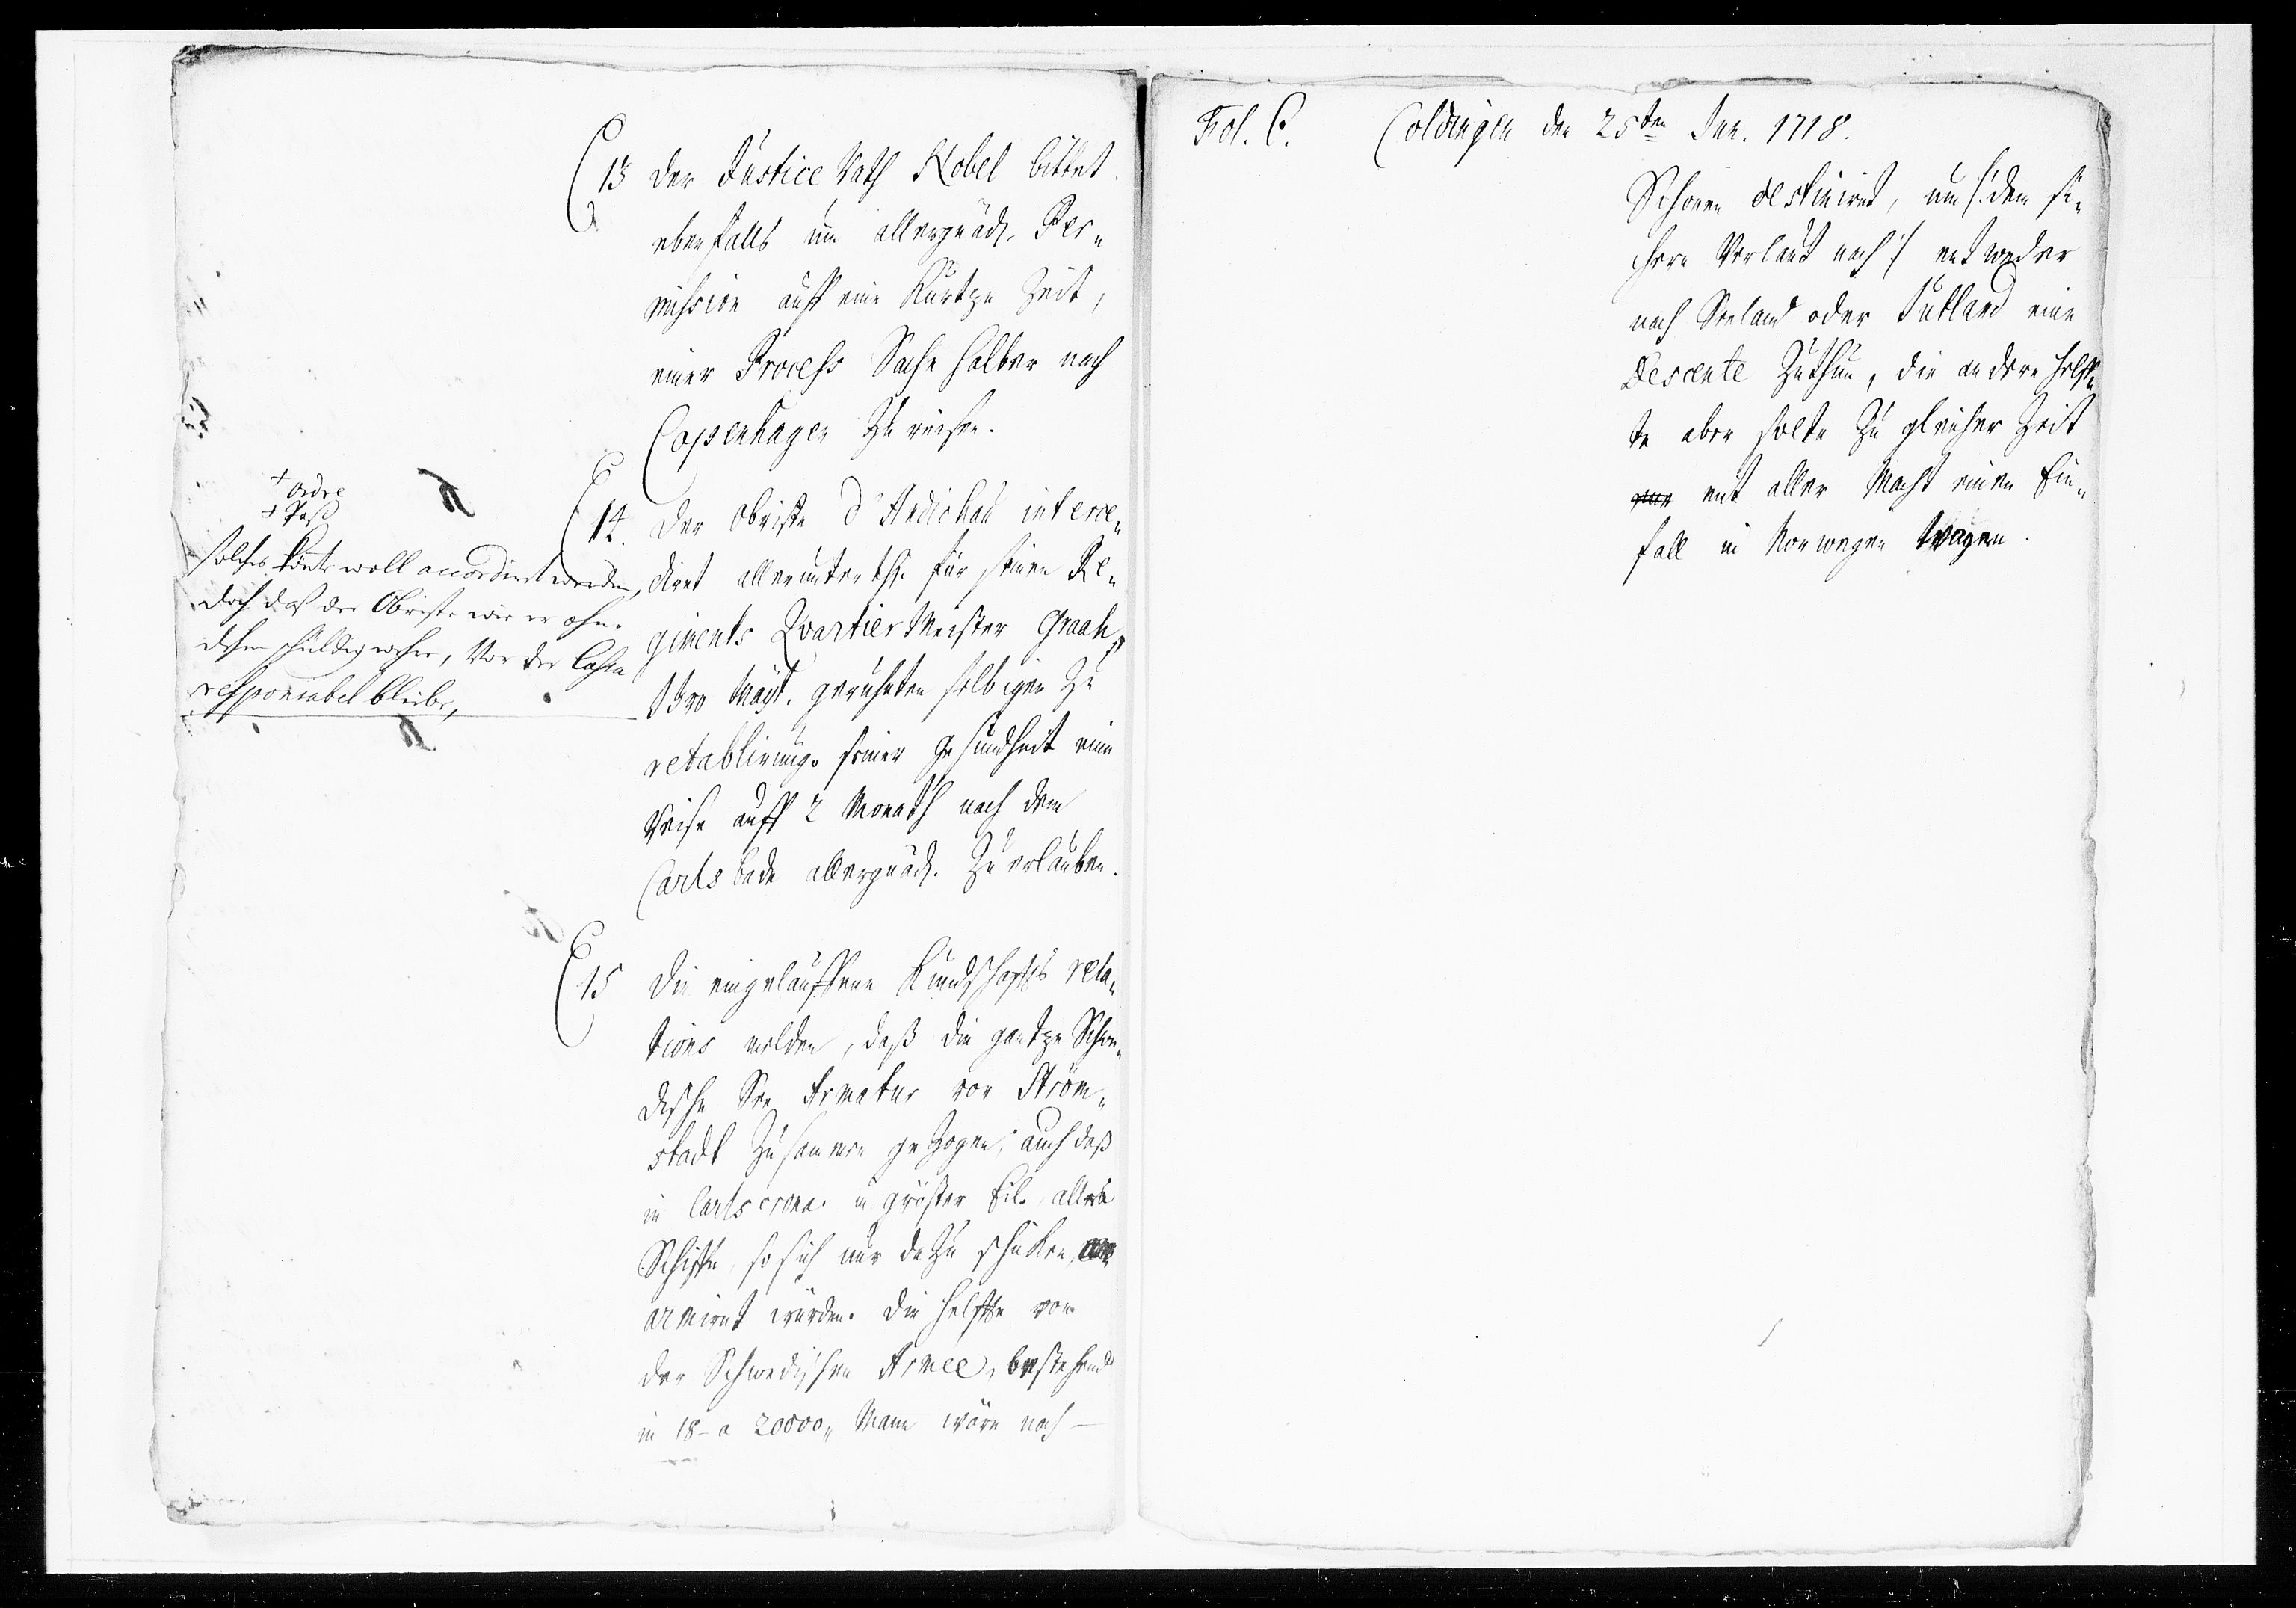 13 Der Justice Rath Kobel bittet
ebenfalls um allergnäd. Per„
mission auff eine Kurtze Zeit,
einer Process Sache halber nach
Copenhagen Zu reisen.
+ ordre
+ Pass
solches könte woll accordirt werden,
doch daß der Obriste wie er ohne
dehm schuldig wehre, Vor der Cassa
responsabel bleibe,
14. Der Obriste d'Andichau interce„
diret allerunterth. für seinen Re„
giments Quartier Meister Graah,
Ihro Mayt. geruheten selbigen Zu
retablirung seiner Gesundheit eine
Reise auff 2 Monath nach dem
Carls bade allergnäd. Zu erlauben.
15 Die eingelauffene Kundschaffts rela„
tions melden, daß die gantze Schwe„
dische See Armatur vor Ström„
stadt Zusammen gezogen, auch daß
in Carlscrona in gröster Eil alle
Schiffe, so sich nur dazu schicken,
armiret würden. Die helffte von
der Schwedischen Armee, bestehend
in 18- a 20000„ Mann wäre nach
Fol. C. Coldingen den 25ten Jan. 1718.
Schonen destiniret, um /: dem si„
chern Verlaut nach :/ entweder
nach Seeland oder Jütland eine
Descente Zuthun, die andere helff„
te aber solte Zu gleicher Zeit
mit aller Macht einen Ein„
fall in Norwegen wagen.